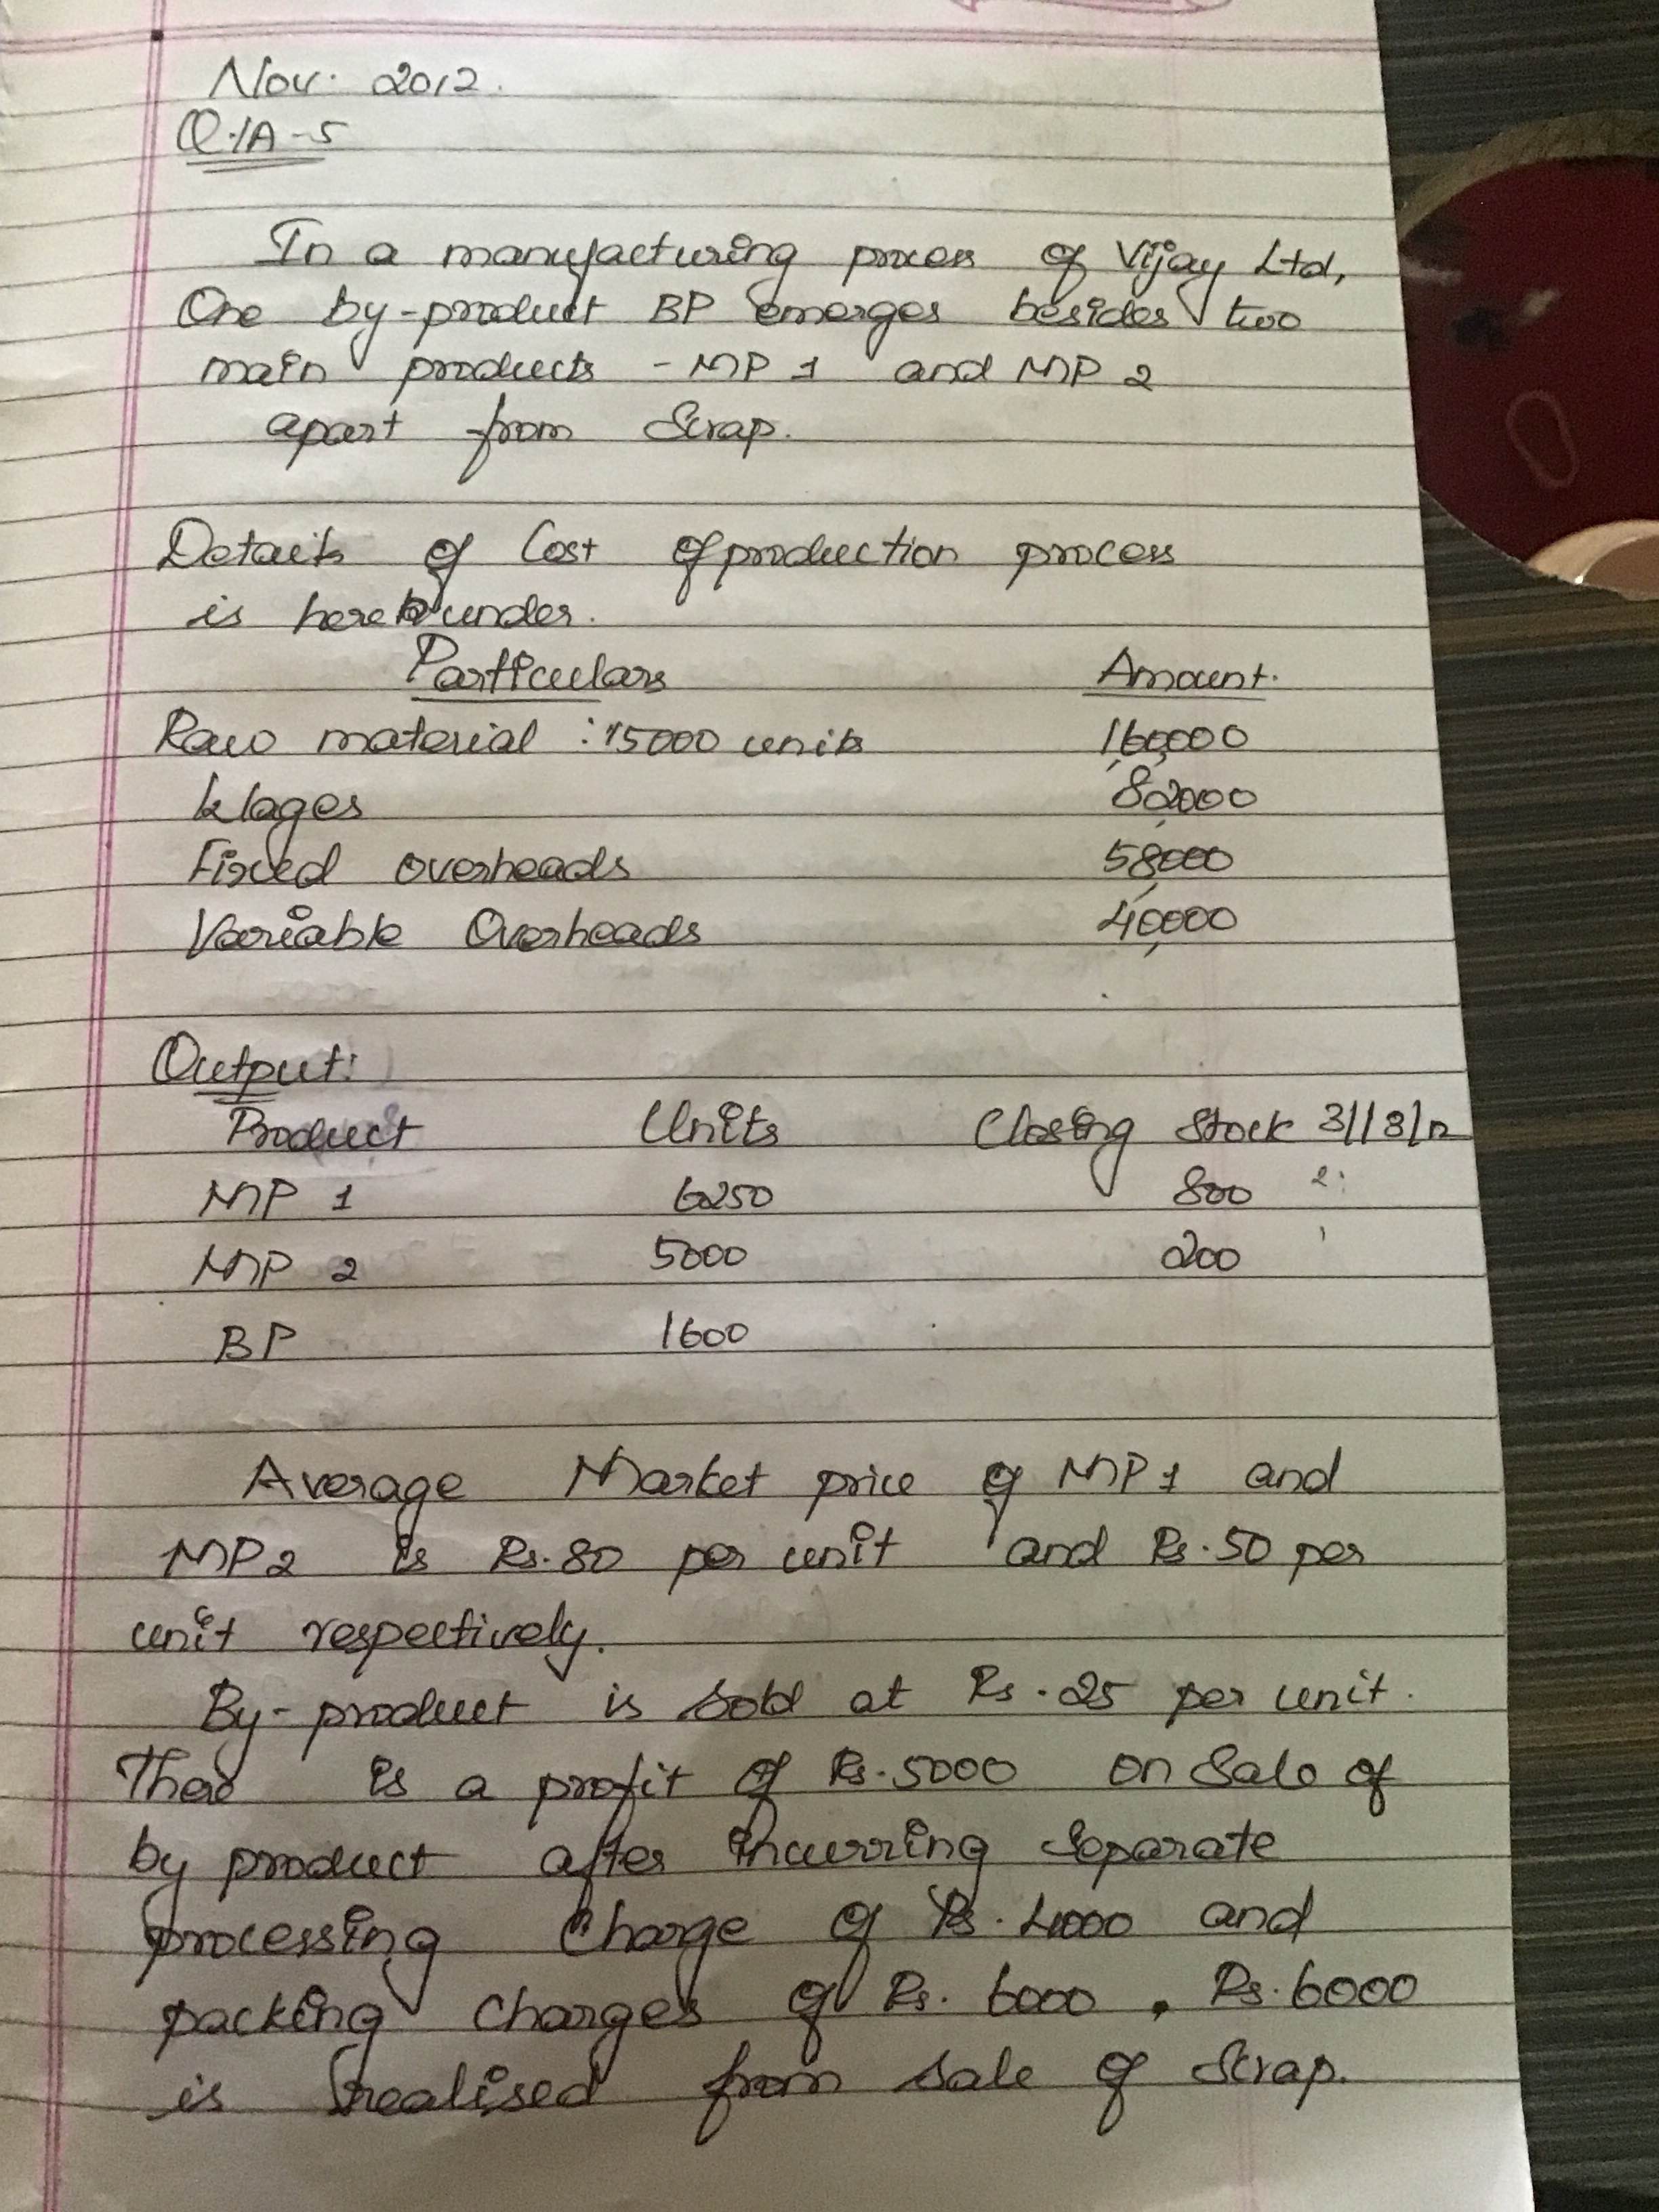 Nov. 2012.
Q.1A-5
In a manufacturing process of Vijay Ltd,
One by-product BP emerges besides two
main products - MP 1 and MP 2
apart from Scrap.
Details of Cost of production process
is here under.
Particulars Amount.
Raw material : 15000 units 1,60,000
Wages 82,000
Fixed overheads 58,000
Variable Overheads 40,000
Output:
Product Units Closing Stock 31/3/12
MP 1 6250 800
MP 2 5000 200
BP 1600
Average Market price of MP 1 and
MP2 is Rs.80 per unit and Rs.50 per
unit respectively.
By-product is sold at Rs.25 per unit.
There is a profit of Rs.5000 on Sale of
by product after incurring separate
processing charge of Rs.4000 and
packing charges of Rs. 6000. Rs.6000
is realised from sale of Scrap.